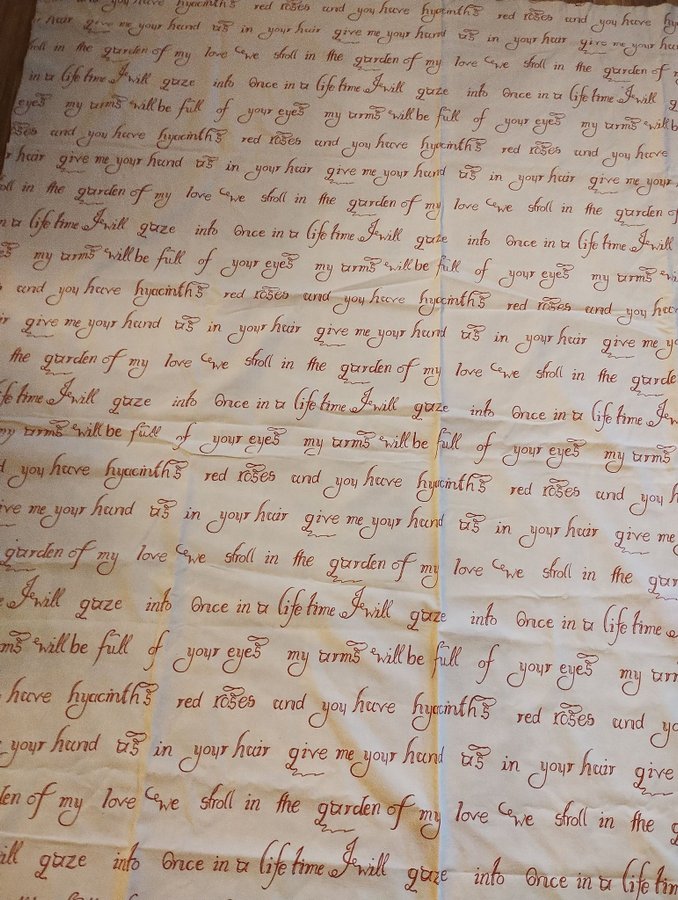 and you have hyacinths red roses and you have hyacinths red roses and you have
hair give me your hand as in your hair give me your hand as in your hair give me your
stroll in the garden of my love we stroll in the garden of my love we stroll in the garden of
in a life time I will gaze into Once in a life time I will gaze into Once in a life time I will
eyes my arms will be full of your eyes my arms will be full of your eyes my arms will
roses and you have hyacinths red roses and you have hyacinths red roses and you have
hair give me your hand as in your hair give me your hand as in your hair give me your
in the garden of my love we stroll in the garden of my love we stroll in the garden of
in a life time I will gaze into Once in a life time I will gaze into Once in a life time I will
my arms will be full of your eyes my arms will be full of your eyes my arms
and you have hyacinths red roses and you have hyacinths red roses and you have
give me your hand as in your hair give me your hand as in your hair give me
the garden of my love we stroll in the garden of my love we stroll in the
life time I will gaze into Once in a life time I will gaze into Once in a life time I
my arms will be full of your eyes my arms will be full of your eyes my arms
you have hyacinths red roses and you have hyacinths red roses and you
me your hand as in your hair give me your hand as in your hair give me
garden of my love we stroll in the garden of my love we stroll in the
I will gaze into Once in a life time I will gaze into Once in a life time
will be full of your eyes my arms will be full of your eyes my
have hyacinths red roses and you have hyacinths red roses and
your hand as in your hair give me your hand as in your hair give
of my love we stroll in the garden of my love we stroll in the
gaze into Once in a life time I will gaze into Once in a life